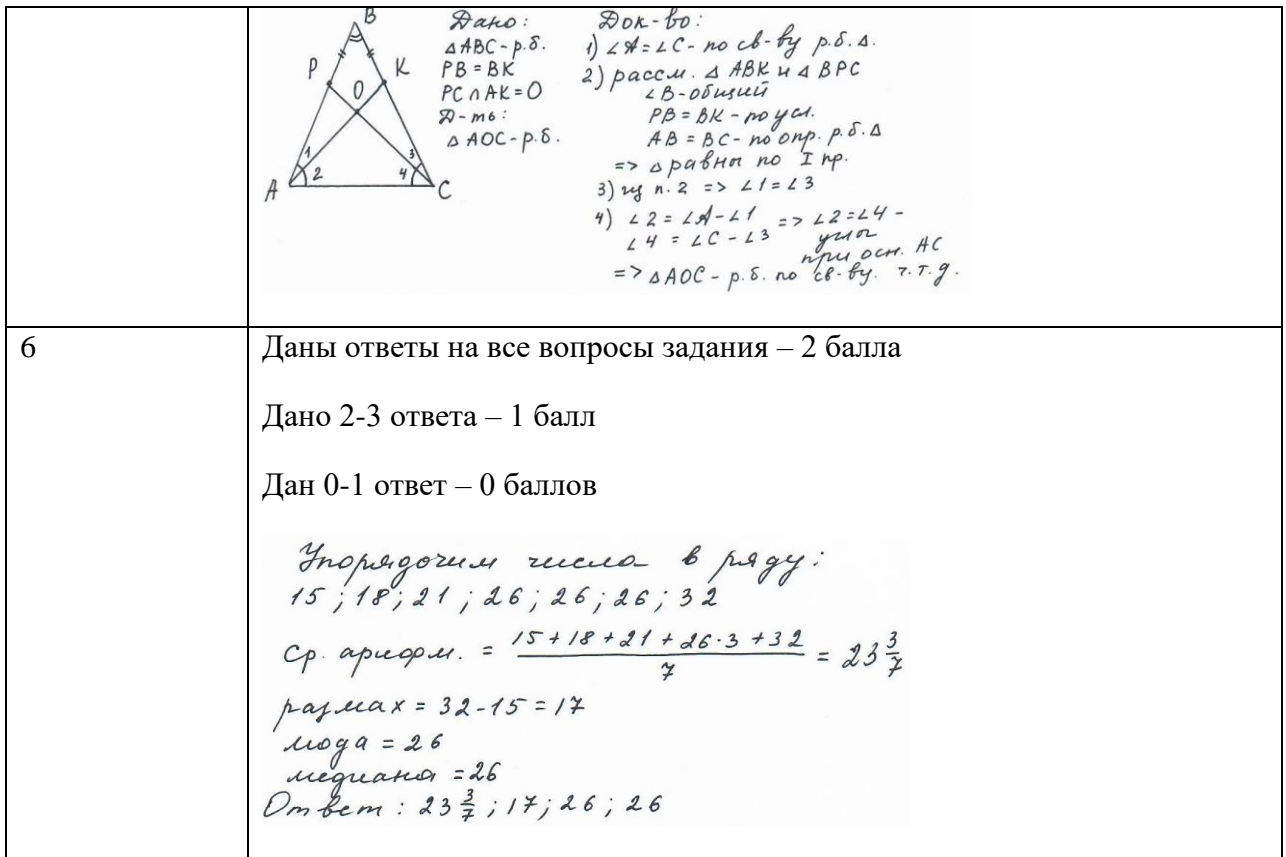 B
P
K
O
1
2
3
4
A
C
Дано:
△ABC - р.б.
PB = BK
PC ∩ AK = O
Д-ть:
△AOC - р.б.
Док-во:
1) ∠A = ∠C - по св-ву р.б.△.
2) рассм. △ABK и △BPC
∠B - общий
PB = BK - по усл.
AB = BC - по опр. р.б.△
=> △ равны по I пр.
3) из п. 2 => ∠1 = ∠3
4) ∠2 = ∠A - ∠1 => ∠2 = ∠4 -
∠4 = ∠C - ∠3 углы
при осн. AC
=> △AOC - р.б. по св-ву. ч.т.д.
6
Даны ответы на все вопросы задания – 2 балла
Дано 2-3 ответа – 1 балл
Дан 0-1 ответ – 0 баллов
Упорядочим числа в ряду:
15; 18; 21; 26; 26; 26; 32
Ср. арифм. = (15+18+21+26·3+32)/7 = 23 3/7
размах = 32-15=17
мода = 26
медиана = 26
Ответ: 23 3/7; 17; 26; 26